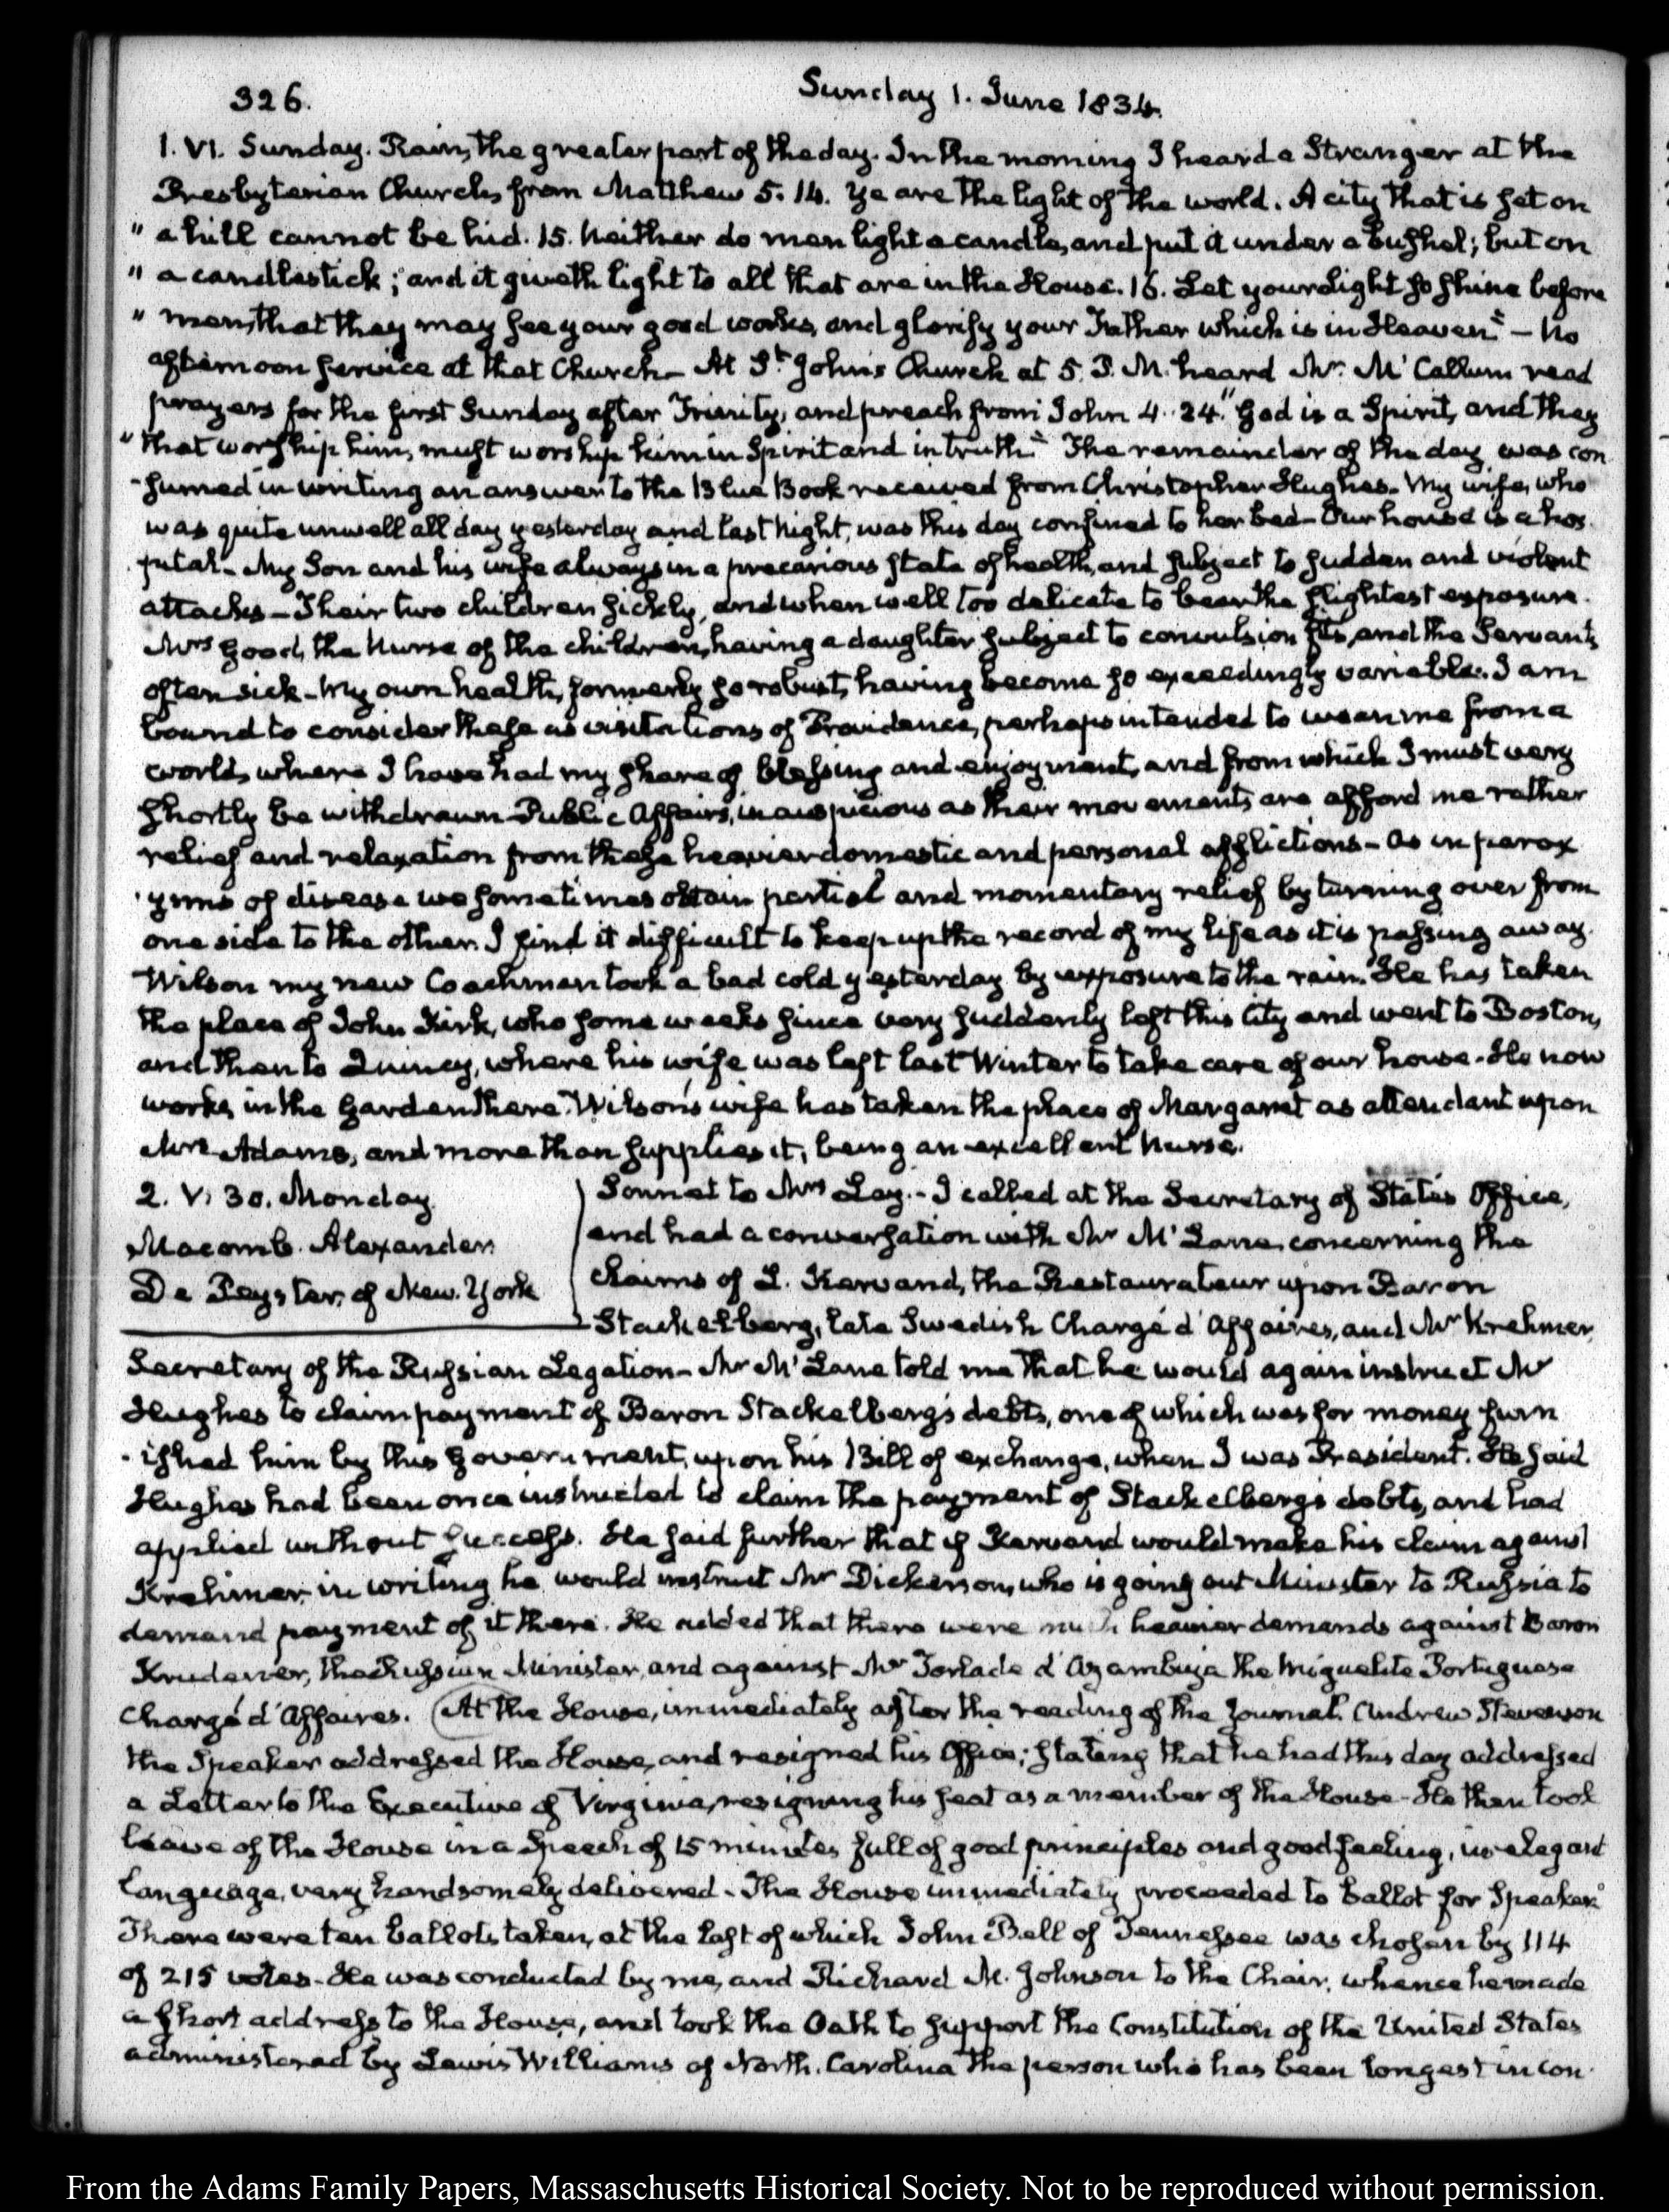 326.
Sunday 1. June 1834.
1. VI. Sunday. Rain, the greater part of the day. In the morning I heard a Stranger at the
Presbyterian Church, from Matthew 5. 14. Ye are the light of the world. A city that is set on
" a hill cannot be hid. 15. Neither do men light a candle, and put it under a bushel; but on
" a candlestick; and it giveth light to all that are in the House. 16. Let your light so shine before
" men, that they may see your good works, and glorify your Father which is in Heaven" — No
afternoon service at that Church — At St. John's Church at 5. P. M. heard Mr. Mc Callum read
prayers for the first Sunday after Trinity, and preach from John 4. 24. "God is a Spirit, and they
" that worship him, must worship him in Spirit and in truth." The remainder of the day was con
-sumed in writing an answer to the Blue Book received from Christopher Hughes. My wife, who
was quite unwell all day yesterday and last Night, was this day confined to her bed — Our house is a hos
-pital — My Son and his wife always in a precarious state of health, and subject to sudden and violent
attacks — Their two children sickly, and when well too delicate to bear the slightest exposure.
Mrs Good, the Nurse of the children, having a daughter subject to convulsion fits, and the Servants
often sick — My own health, formerly so robust, having become so exceedingly variable. I am
bound to consider these as visitations of Providence, perhaps intended to wean me from a
world, where I have had my share of blessing and enjoyment, and from which I must very
shortly be withdrawn — Public Affairs, inauspicious as their movements are afford me rather
relief and relaxation from these heavier domestic and personal afflictions — As in parox
-ysms of disease we sometimes obtain partial and momentary relief by turning over from
one side to the other. I find it difficult to keep up the record of my life as it is passing away.
Wilson my new Coachman took a bad cold yesterday by exposure to the rain. He has taken
the place of John Kirk, who some weeks since very suddenly left this City and went to Boston,
and then to Quincy, where his wife was left last Winter to take care of our house. He now
works in the Garden there. Wilson's wife has taken the place of Margaret as attendant upon
Mrs Adams, and more than supplies it, being an excellent Nurse.
2. V. 30. Monday.
Macomb. Alexander
De Peyster, of New. York
Sonnet to Mrs Lay. - I called at the Secretary of State's Office,
and had a conversation with Mr McLane, concerning the
claims of L. Kervand, the Restaurateur upon Baron
Stackelberg, late Swedish Chargé d'Affaires, and Mr Krehmer,
Secretary of the Russian Legation — Mr McLane told me that he would again instruct Mr
Hughes to claim payment of Baron Stackelberg's debts, one of which was for money furn
-ished him by this Government, upon his Bill of exchange, when I was President. He said
Hughes had been once instructed to claim the payment of Stackelberg's debts, and had
applied without success. He said further that if Kervand would make his claim against
Krehmer, in writing he would instruct Mr Dickerson, who is going out Minister to Russia to
demand payment of it there. He added that there were much heavier demands against Baron
Krudener, the Russian Minister, and against Mr Torlade d'Azambuja the Miguelite Portuguese
Chargé d'Affaires. At the House, immediately after the reading of the Journal. Andrew Stevenson
the Speaker addressed the House, and resigned his Office; stating that he had this day addressed
a Letter to the Executive of Virginia, resigning his seat as a member of the House — He then took
leave of the House in a Speech of 15 minutes full of good principles and good feeling, in elegant
language, very handsomely delivered — The House immediately proceeded to ballot for Speaker.
There were ten ballots taken, at the last of which John Bell of Tennessee was chosen by 114
of 215 votes — He was conducted by me, and Richard M. Johnson to the Chair, whence he made
a short address to the House, and took the Oath to support the Constitution of the United States
administered by Lewis Williams of North. Carolina the person who has been longest in con-
From the Adams Family Papers, Massachusetts Historical Society. Not to be reproduced without permission.